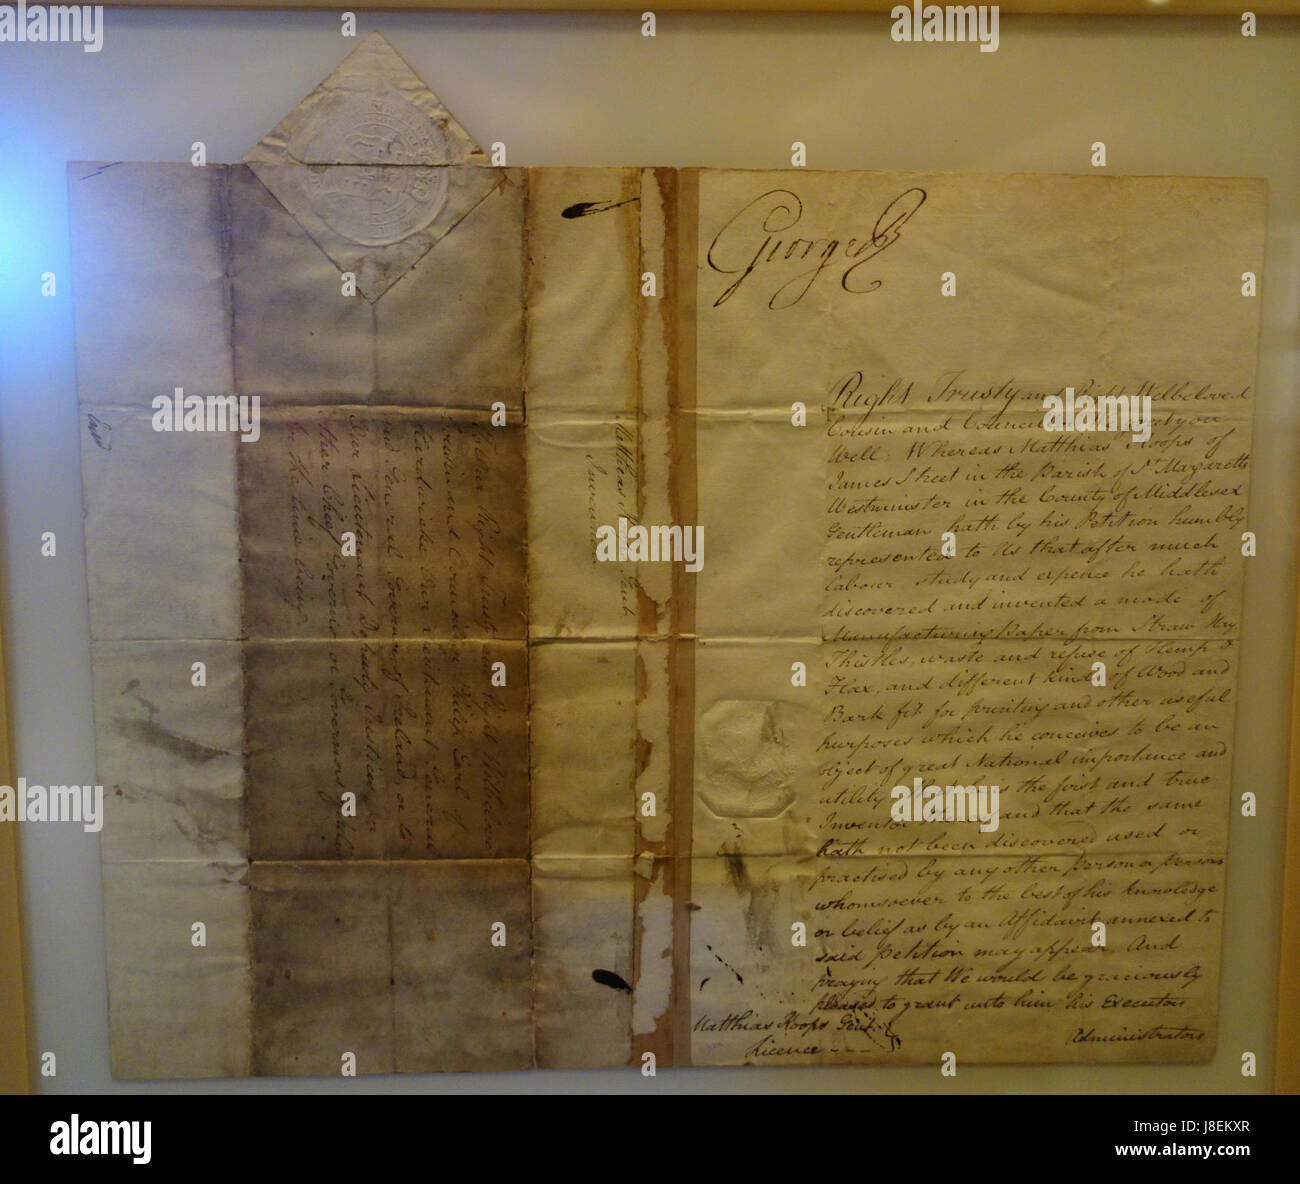 George R
Right Trusty and Right Welbeloved
Cousin and Councillor We greet you
Well: Whereas Matthias Koops of
James Street in the Parish of St. Margaretts
Westminster in the County of Middlesex
Gentleman hath by his Petition humbly
represented to Us that after much
labour study and expence he hath
discovered and invented a mode of
Manufacturing Paper from Straw Hay
Thistles, waste and refuse of Hemp &
Flax, and different kinds of Wood and
Bark fit for printing and other useful
purposes which he conceives to be an
object of great National importance and
utility That he is the first and true
Inventor thereof and that the same
hath not been discovered used or
practised by any other person or persons
whomsoever to the best of his knowledge
or belief as by an Affidavit annexed to
said Petition may appear. And
praying that We would be graciously
pleased to grant unto him his Executors
Administrators
Matthias Koops Gent
Licence
Matthias Koops Gent
Invention
To Our Right Trusty and Right Welbeloved
Cousin and Councillor Philip Earl of
Hardwicke Our Lieutenant General
and General Governor of Ireland or to
Our Lieutenant Deputy Justices or
other Chief Governor or Governors
for the time being
alamy
Image ID: J8EKXR
www.alamy.com